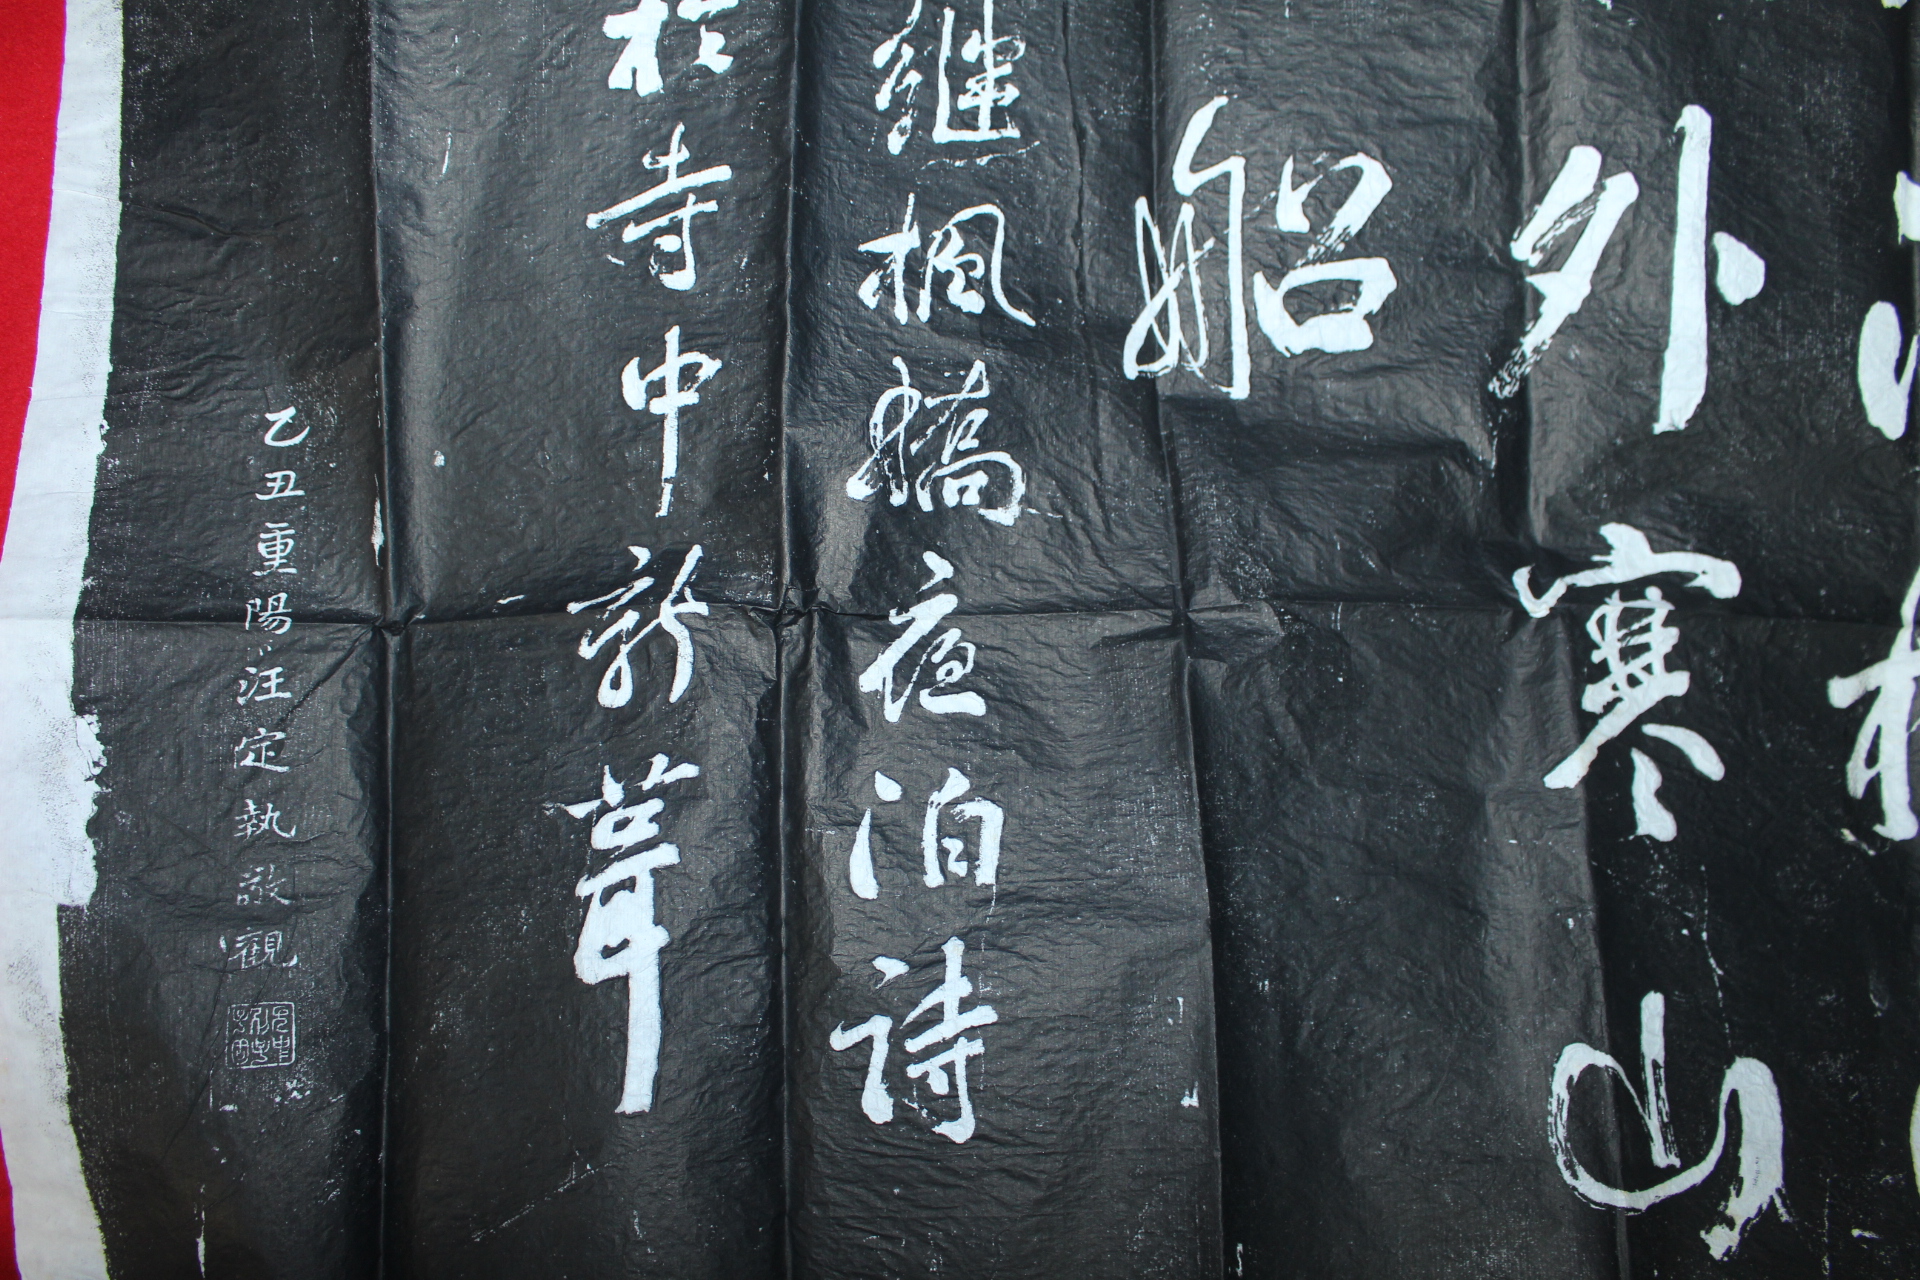 外寒山
船
继楓橋夜泊诗
於寺中新葺
乙丑重陽汪定執敬觀